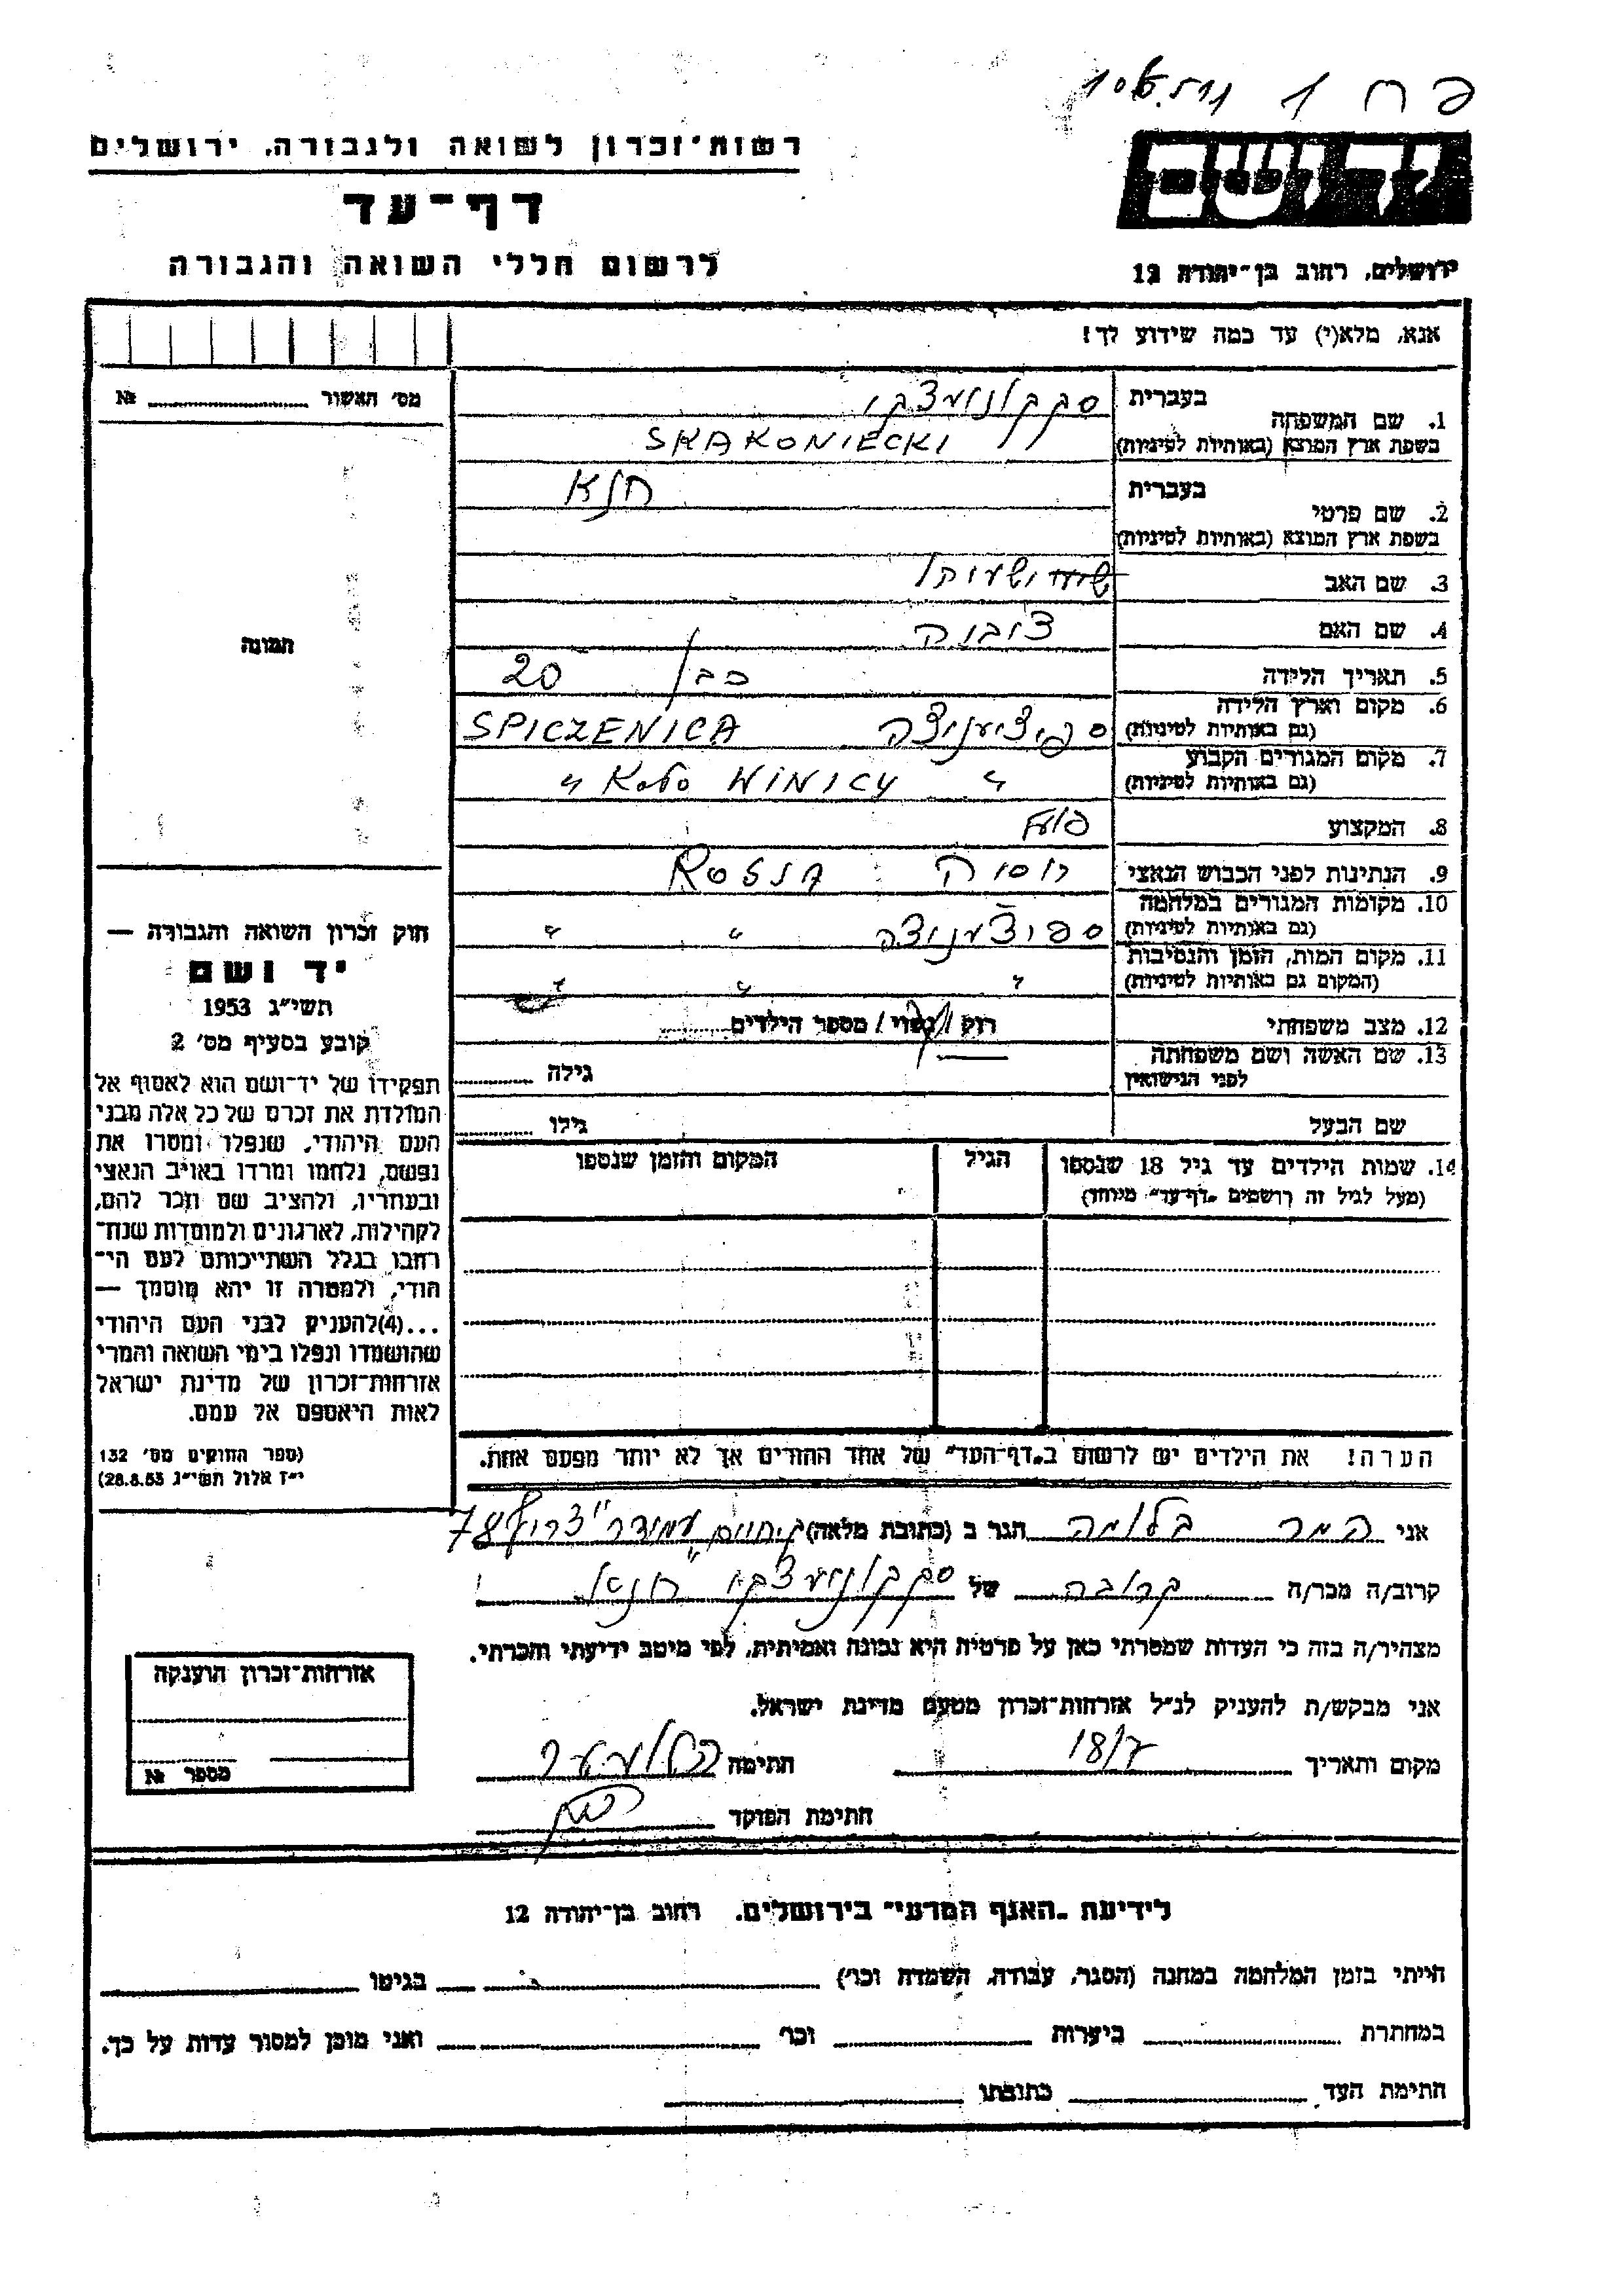 פ ח 1
רשות־זכרון לשואה ולגבורה, ירושלים
יד ושם
דף־עד
לרשום חללי השואה והגבורה
ירושלים, רחוב בן־יהודה 12
אנא, מלא(י) עד כמה שידוע לך!
מס' האשור № ............
תמונה
1. שם המשפחה בעברית
בשפת ארץ המוצא (באותיות לטיניות) SKAKONIECKI
2. שם פרטי בעברית חנא
בשפת ארץ המוצא (באותיות לטיניות)
3. שם האב
4. שם האם
5. תאריך הלידה כבן 20
6. מקום וארץ הלידה (גם באותיות לטיניות) ספיצעניצה SPICZENICA
7. מקום המגורים הקבוע (גם באותיות לטיניות) " KOŁO WINICY "
8. המקצוע פועל
9. הנתינות לפני הכבוש הנאצי רוסיה ROSJA
10. מקומות המגורים במלחמה (גם באותיות לטיניות) ספיצעניצה " "
11. מקום המות, הזמן והנסיבות (המקום גם באותיות לטיניות) " " "
12. מצב משפחתי רוק / נשוי / מספר הילדים ........
13. שם האשה ושם משפחתה לפני הנישואין גילה ........
שם הבעל גילו ........
14. שמות הילדים עד גיל 18 שנספו הגיל המקום והזמן שנספו
(מעל לגיל זה רושמים „דף־עד" מיוחד)
הערה! את הילדים יש לרשום ב„דף־העד" של אחד ההורים אך לא יותר מפעם אחת.
חוק זכרון השואה והגבורה —
יד ושם
תשי"ג 1953
קובע בסעיף מס' 2
תפקידו של יד־ושם הוא לאסוף אל
המולדת את זכרם של כל אלה מבני
העם היהודי, שנפלו ומסרו את
נפשם, נלחמו ומרדו באויב הנאצי
ובעוזריו, ולהציב שם וזכר להם,
לקהילות, לארגונים ולמוסדות שנח־
רבו בגלל השתייכותם לעם הי־
הודי, ולמטרה זו יהא מוסמך —
...(4)להעניק לבני העם היהודי
שהושמדו ונפלו בימי השואה והמרי
אזרחות־זכרון של מדינת ישראל
לאות היאספם אל עמם.
(ספר החוקים מס' 132
י"ז אלול תשי"ג 28.8.53)
אני המר בלומה הגר ב (כתובת מלאה) 78
קרוב/ה מכר/ה קרובה של
מצהיר/ה בזה כי העדות שמסרתי כאן על פרטיה היא נכונה ואמיתית, לפי מיטב ידיעתי והכרתי.
אני מבקש/ת להעניק לנ"ל אזרחות־זכרון מטעם מדינת ישראל.
מקום ותאריך 18/7 חתימה
חתימת הפוקד
אזרחות־זכרון הוענקה
מספר №
לידיעת „האגף המדעי" בירושלים, רחוב בן־יהודה 12
הייתי בזמן המלחמה במחנה (הסגר, עבודה, השמדה וכו') ............ בגיטו ............
במחתרת ............ ביערות ............ וכו' ............ ואני מוכן למסור עדות על כך.
חתימת העד ............ כתובתו ............